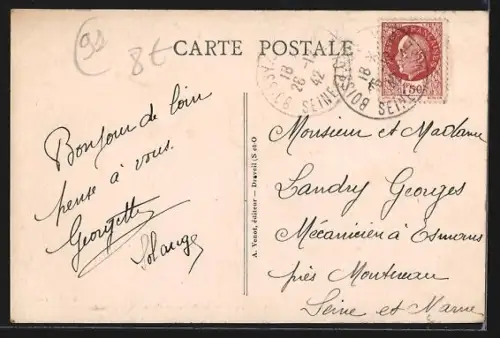 91
8€
CARTE POSTALE
BOISSY
18
26 -1
42
SEINE
BOISSY
18
SEINE
1F50
Bonjour de loin
pense à vous.
Georgette
Solange
A. Venot, éditeur - Draveil (S-et-O
Monsieur et Madame
Landry Georges
Mécanicien à Esmans
près Montereau
Seine et Marne